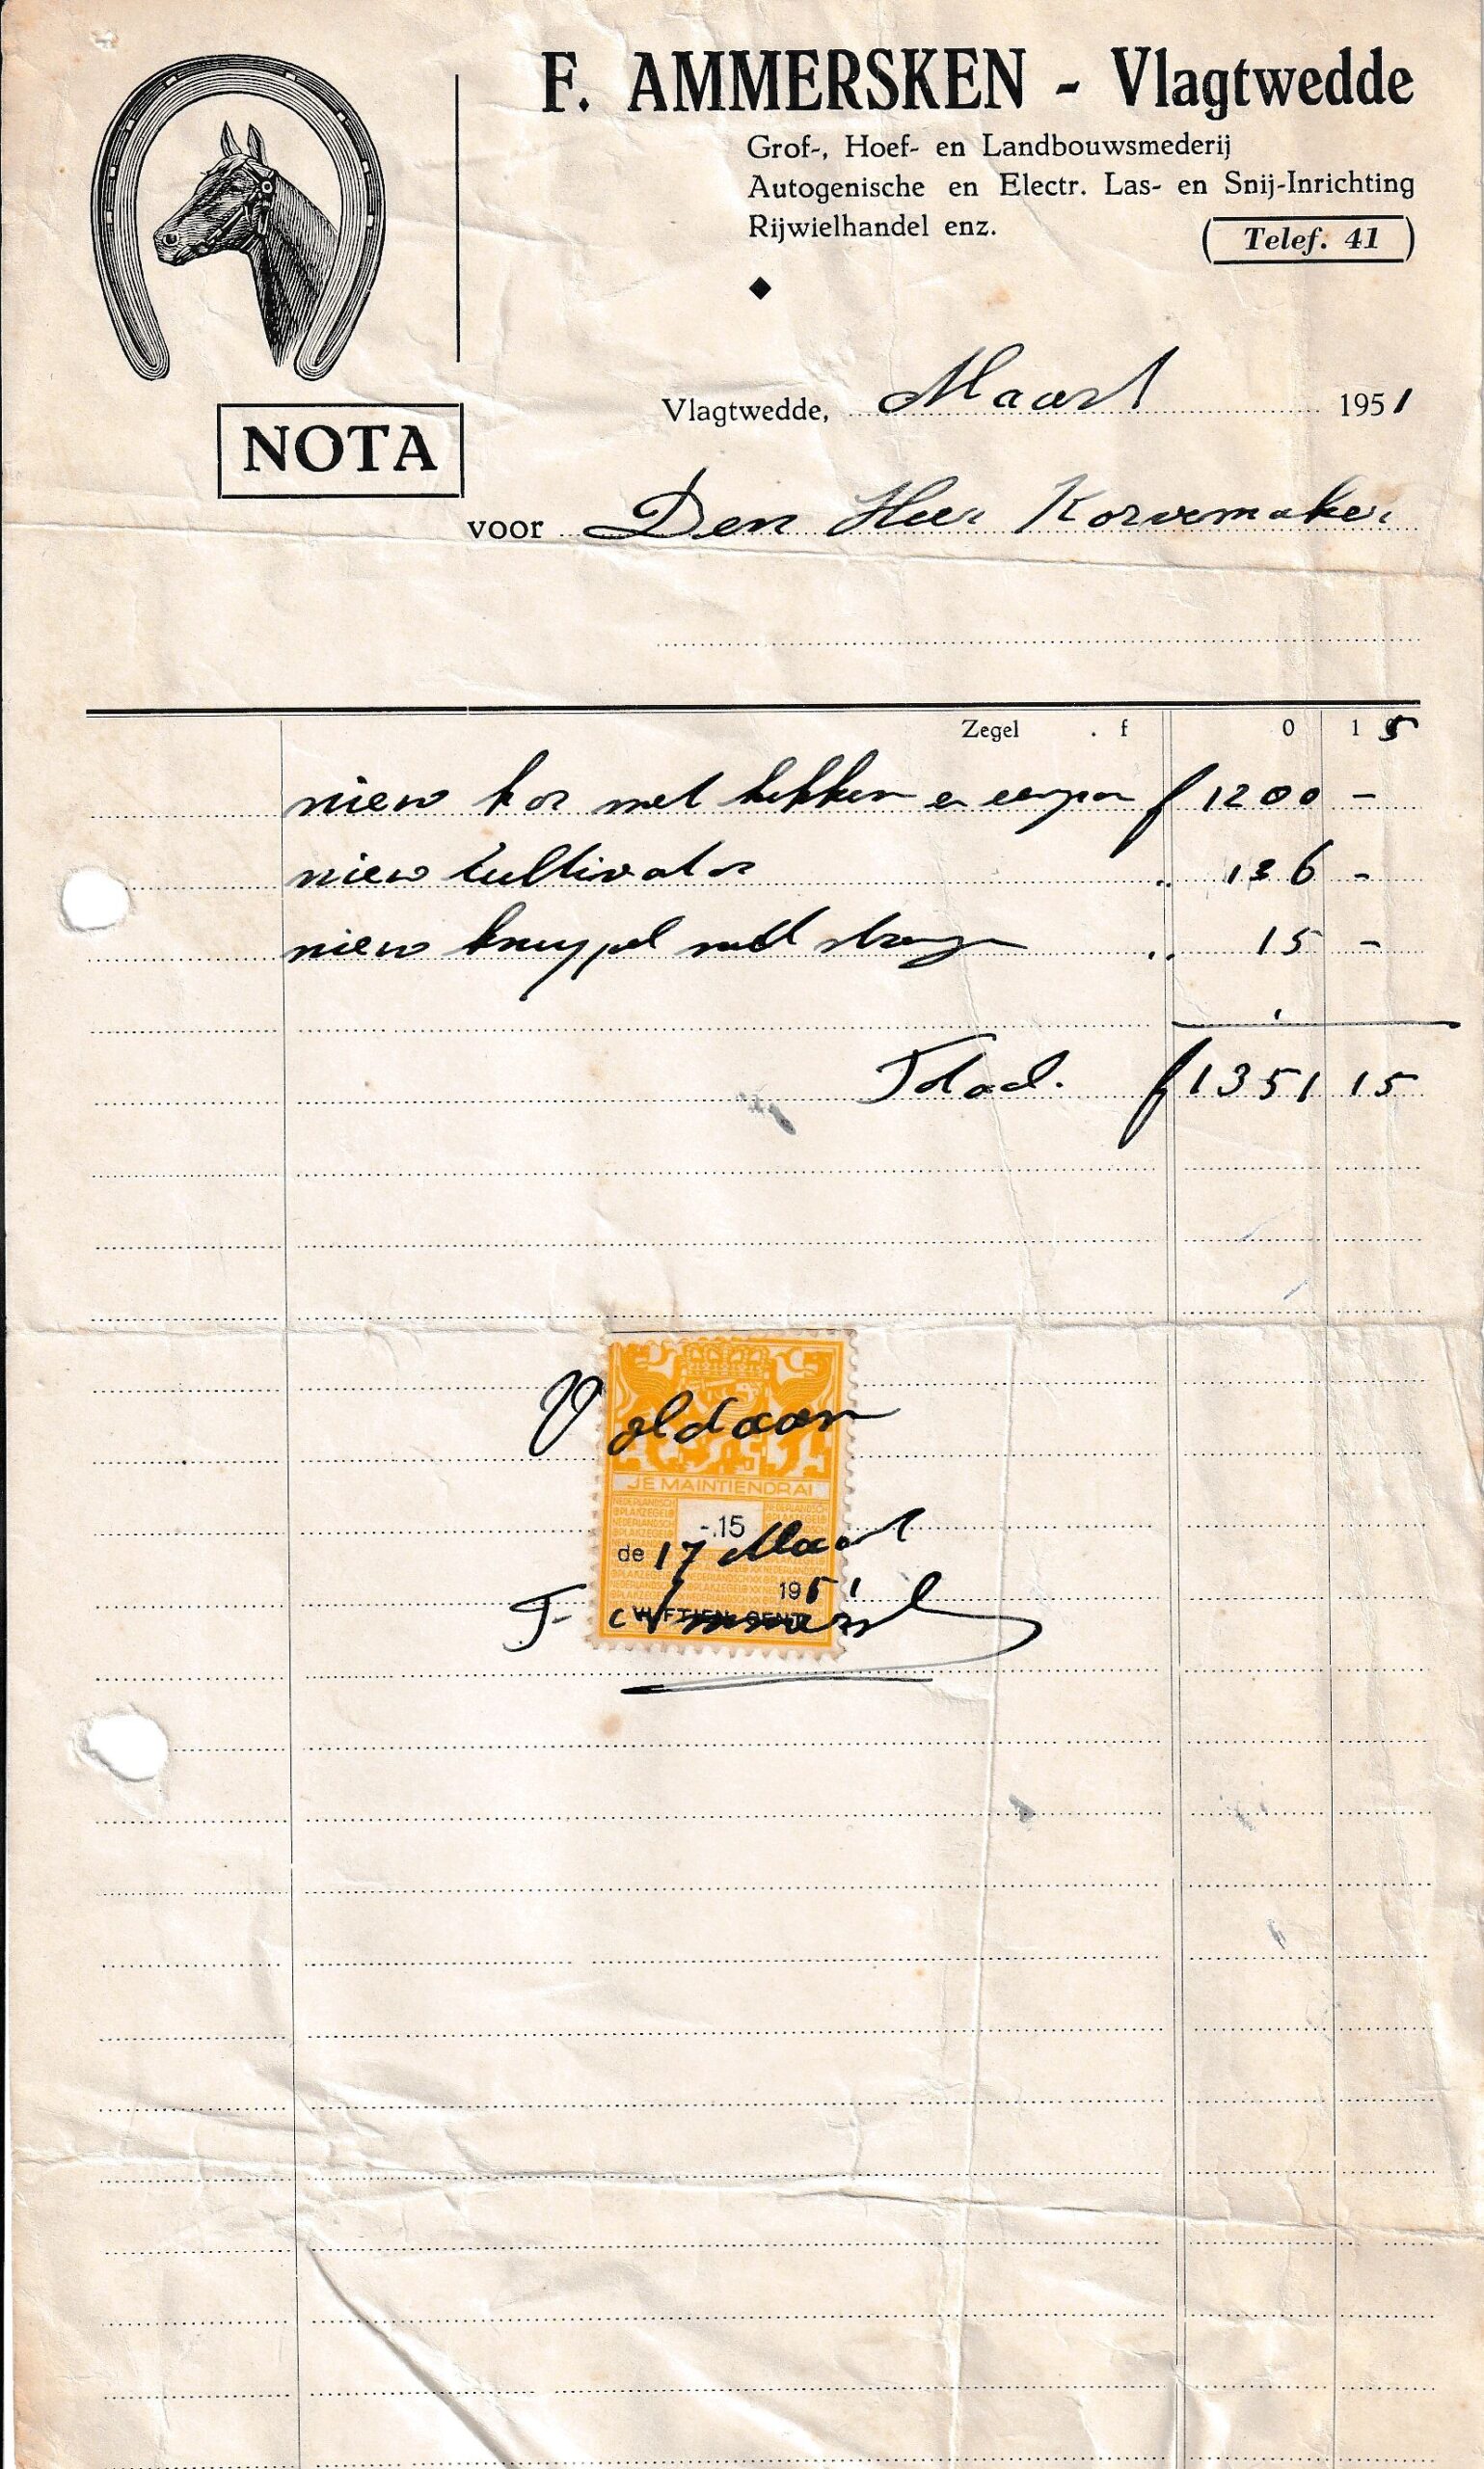 F. AMMERSKEN - Vlagtwedde
Grof-, Hoef- en Landbouwsmederij
Autogenische en Electr. Las- en Snij-Inrichting
Rijwielhandel enz.
Telef. 41
Vlagtwedde, Maart 1951
NOTA
voor Den Heer Korvemaker
Zegel . f 0 15
niew kar met hekken en f 1200 -
niew cultivator .. 136 -
niew knuppel met .. 15 -
Totaal. f 1351 15
Voldaan
JE MAINTIENDRAI
-.15
de 17 Maart
1951
VIJFTIEN CENT
F. Ammersk